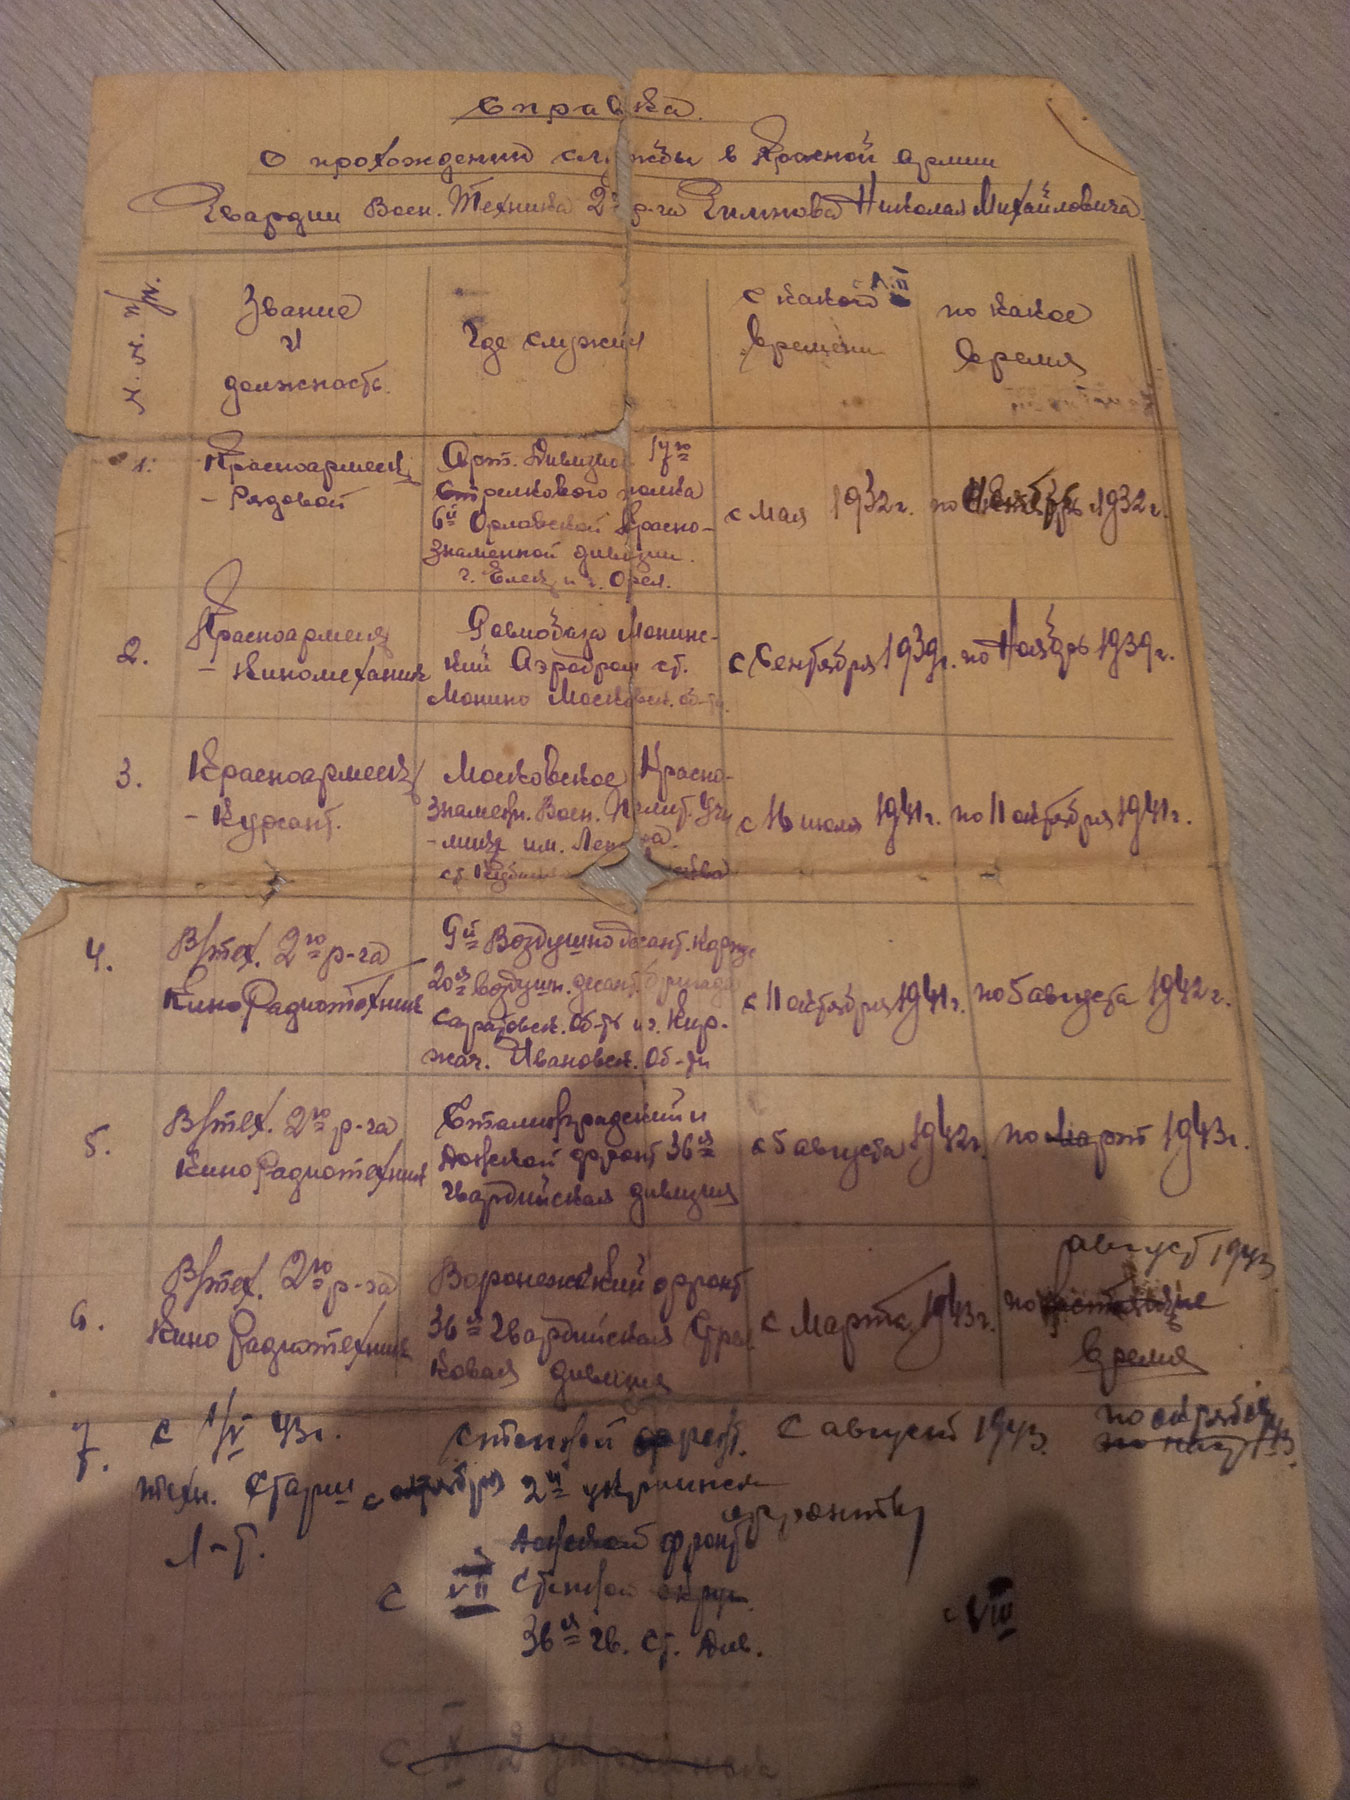 Справка
О прохождении службы в Красной армии
Гвардии Воен. Техника 2го р-га Николая Михайловича
№.№. п/п.
Звание
и
должность.
Где служил
с какого
времени
по какое
время
1.
Красноармеец
- Рядовой
Арт. Дивизион 17го
Стрелкового полка
6й Орловской Красно-
знаменной дивизии.
г. Елец и г. Орел.
с Мая 1932г.
по 1932г.
2.
Красноармеец
- Киномеханик
Авиобаза Монинс-
кий Аэродром ст.
Монино Московск. об-ть.
с Сентября 1939г.
по Ноябрь 1939г.
3.
Красноармеец
- Курсант.
Московское Красно-
знамен. Воен. Полит. Учи
-лище им. Ленина.
ст.
с 16 июля 1941г.
по 11 октября 1941г.
4.
В/тех. 2го р-га
КиноРадиотехник
9й Воздушно десант. Корпус
20я воздушн. десант. бригада
Саратовск. Об-ть и г. Кир-
жач. Ивановск. Об-ти
с 11 октября 1941г.
по 5 августа 1942г.
5.
В/тех. 2го р-га
КиноРадиотехник
Сталинградский и
Донской фронт 36я
гвардийская дивизия
с 5 августа 1942г.
по Март 1943г.
6.
В/тех. 2го р-га
Кино Радиотехник
Воронежский фронт
36я Гвардийская Стрел
ковая дивизия
с Марта 1943г.
август 1943
по настоящие
время
7.
с 1/V 43г.
техн. Старш
Л-т.
Степной фронт.
с октября 2й украинск
фронты
Донской фронт
с VII Степной округ.
36я гв. ст. див.
с август 1943
по октября
43.
VIII
с 2 украинск